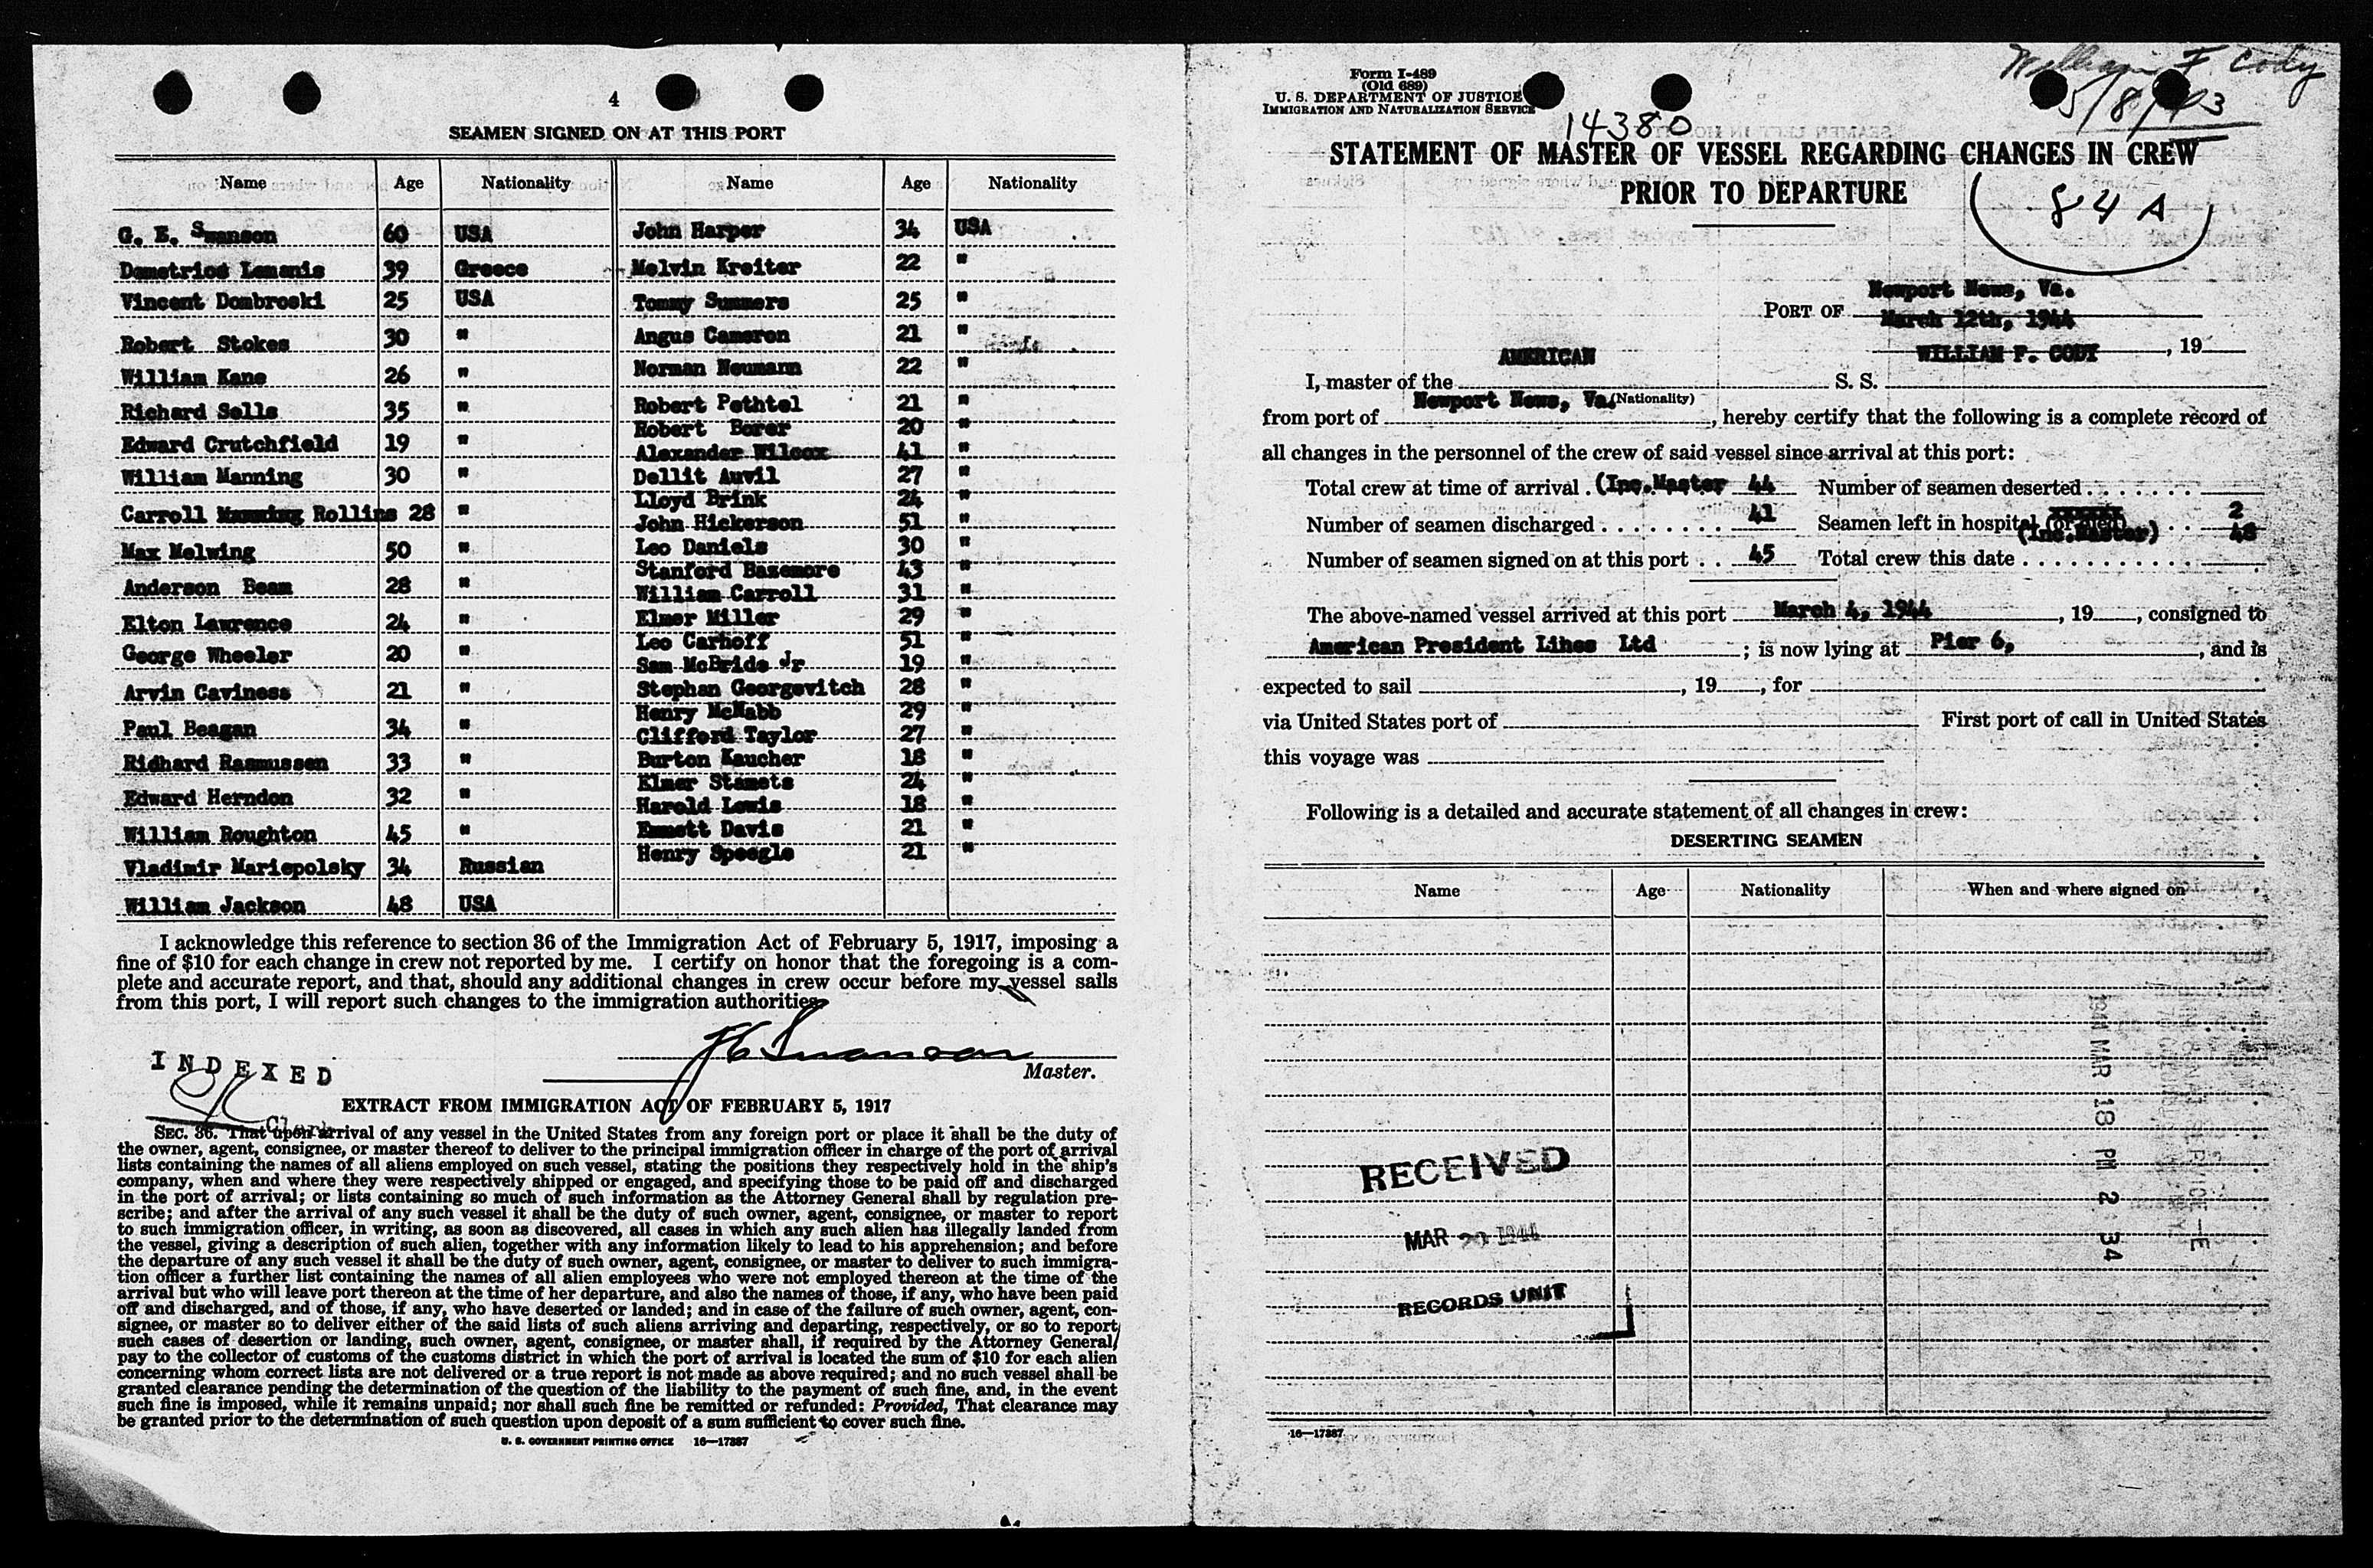 4
SEAMEN SIGNED ON AT THIS PORT
Name Age Nationality Name Age Nationality
G. E. Swanson 60 USA John Harper 34 USA
Demetrios Lemanis 39 Greece Melvin Kreiter 22 "
Vincent Dombroski 25 USA Tommy Summers 25 "
Robert Stokes 30 " Angus Cameron 21 "
William Kane 26 " Norman Neumann 22 "
Richard Sells 35 " Robert Pethtel 21 "
Robert Borer 20 "
Edward Crutchfield 19 " Alexander Wilcox 41 "
William Manning 30 " Dellit Auvil 27 "
Lloyd Brink 24 "
Carroll Manning Rollins 28 " John Hickerson 51 "
Max Melwing 50 " Leo Daniels 30 "
Stanford Bazemore 43 "
Anderson Beam 28 " William Carroll 31 "
Elton Lawrence 24 " Elmer Miller 29 "
Leo Carhoff 51 "
George Wheeler 20 " Sam McBride Jr 19 "
Arvin Caviness 21 " Stephan Georgevitch 28 "
Henry McNabb 29 "
Paul Beagan 34 " Clifford Taylor 27 "
Ridhard Rasmussen 33 " Burton Kaucher 18 "
Elmer Stamets 24 "
Edward Herndon 32 " Harold Lewis 18 "
William Roughton 45 " Emmett Davis 21 "
Vladimir Mariepolsky 34 Russian Henry Speegle 21 "
William Jackson 48 USA
I acknowledge this reference to section 36 of the Immigration Act of February 5, 1917, imposing a
fine of $10 for each change in crew not reported by me. I certify on honor that the foregoing is a com-
plete and accurate report, and that, should any additional changes in crew occur before my vessel sails
from this port, I will report such changes to the immigration authorities.
G E Swanson
Master.
INDEXED
Clerk
EXTRACT FROM IMMIGRATION ACT OF FEBRUARY 5, 1917
SEC. 36. That upon arrival of any vessel in the United States from any foreign port or place it shall be the duty of
the owner, agent, consignee, or master thereof to deliver to the principal immigration officer in charge of the port of arrival
lists containing the names of all aliens employed on such vessel, stating the positions they respectively hold in the ship's
company, when and where they were respectively shipped or engaged, and specifying those to be paid off and discharged
in the port of arrival; or lists containing so much of such information as the Attorney General shall by regulation pre-
scribe; and after the arrival of any such vessel it shall be the duty of such owner, agent, consignee, or master to report
to such immigration officer, in writing, as soon as discovered, all cases in which any such alien has illegally landed from
the vessel, giving a description of such alien, together with any information likely to lead to his apprehension; and before
the departure of any such vessel it shall be the duty of such owner, agent, consignee, or master to deliver to such immigra-
tion officer a further list containing the names of all alien employees who were not employed thereon at the time of the
arrival but who will leave port thereon at the time of her departure, and also the names of those, if any, who have been paid
off and discharged, and of those, if any, who have deserted or landed; and in case of the failure of such owner, agent, con-
signee, or master so to deliver either of the said lists of such aliens arriving and departing, respectively, or so to report
such cases of desertion or landing, such owner, agent, consignee, or master shall, if required by the Attorney General,
pay to the collector of customs of the customs district in which the port of arrival is located the sum of $10 for each alien
concerning whom correct lists are not delivered or a true report is not made as above required; and no such vessel shall be
granted clearance pending the determination of the question of the liability to the payment of such fine, and, in the event
such fine is imposed, while it remains unpaid; nor shall such fine be remitted or refunded: Provided, That clearance may
be granted prior to the determination of such question upon deposit of a sum sufficient to cover such fine.
U. S. GOVERNMENT PRINTING OFFICE 16—17387
William F Cody
5/8/43
Form I-489
(Old 689)
U. S. DEPARTMENT OF JUSTICE
IMMIGRATION AND NATURALIZATION SERVICE
14380
STATEMENT OF MASTER OF VESSEL REGARDING CHANGES IN CREW
PRIOR TO DEPARTURE
(84 A)
Newport News, Va.
PORT OF
March 12th, 1944
AMERICAN WILLIAM F. CODY , 19
I, master of the S. S.
Newport News, Va. (Nationality)
from port of , hereby certify that the following is a complete record of
all changes in the personnel of the crew of said vessel since arrival at this port:
Total crew at time of arrival . (Inc.Master 44 Number of seamen deserted
Number of seamen discharged 41 Seamen left in hospital (or died) 2
(Inc.Master) 48
Number of seamen signed on at this port 45 Total crew this date
The above-named vessel arrived at this port March 4, 1944 , 19 , consigned to
American President Lines Ltd ; is now lying at Pier 6, , and is
expected to sail , 19 , for
via United States port of First port of call in United States
this voyage was
Following is a detailed and accurate statement of all changes in crew:
DESERTING SEAMEN
Name Age Nationality When and where signed on
1944 MAR 18 PM 2 34
RECEIVED
MAR 20 1944
RECORDS UNIT
16—17387